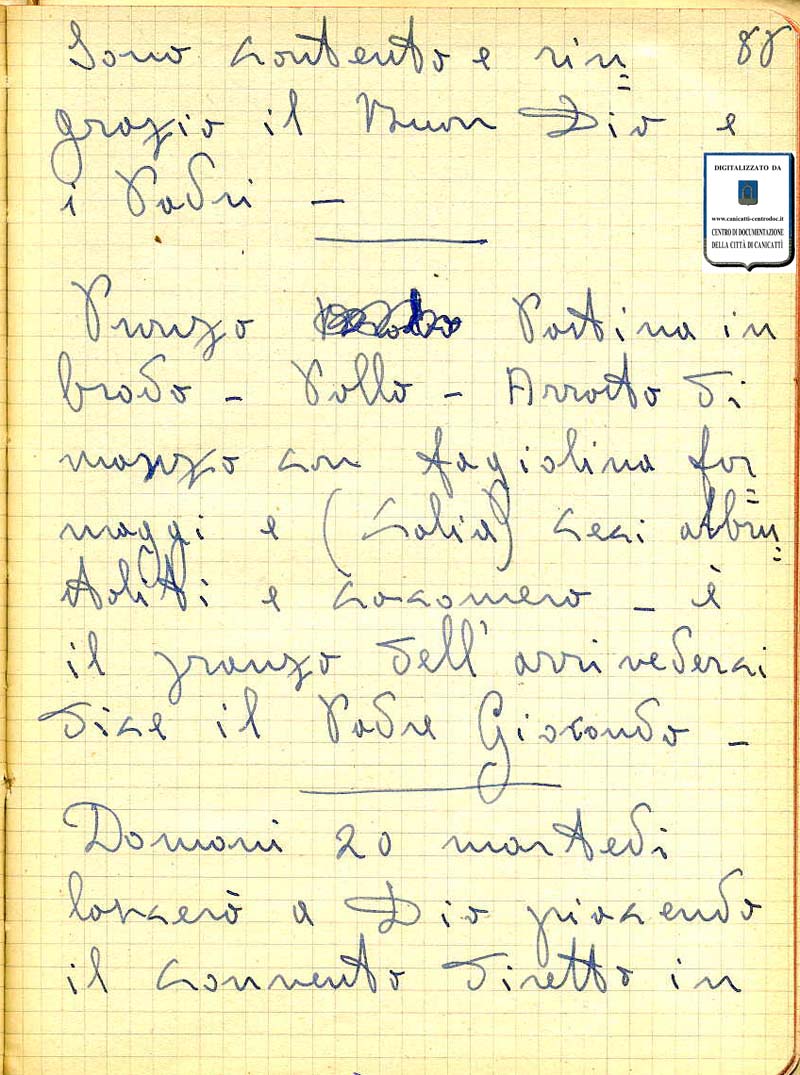 Sono contento e rin=
grazio il Buon Dio e
i Padri –
DIGITALIZZATO DA
www.canicatti-centrodoc.it
CENTRO DI DOCUMENTAZIONE
DELLA CITTÀ DI CANICATTÌ
Pranzo Pastina in
brodo – Pollo – Arrosto di
manzo con fagiolina for=
maggi e (Calia) ceci abbru=
stoliti e cocomero – è
il pranzo dell'arrivederci
dice il Padre Giocondo –
Domani 20 martedi
lascerò a Dio piacendo
il convento diretto in